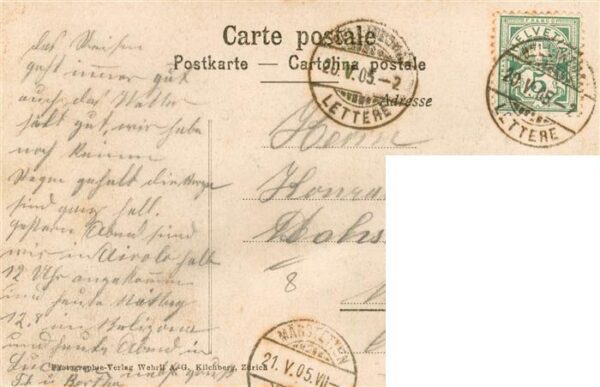 Carte postale
Postkarte — Cartolina postale
Adresse
HELVETIA
FRANCO
5
20.V.05.–2
LETTERE
20.V.05.–2
LETTERE
das Reisen
geht immer gut
auch das Wetter
hält gut, wir habe
noch keinen
Regen gehabt die Berge
sind ganz hell.
gestern Abend sind
wir in Airolo halb
12 Uhr angekommen
und heute Mittag
12.8 in
und heute Abend in
Herrn
8
21.V.05.VII–
Photographie-Verlag Wehrli A.-G. Kilchberg, Zürich
u Bertha